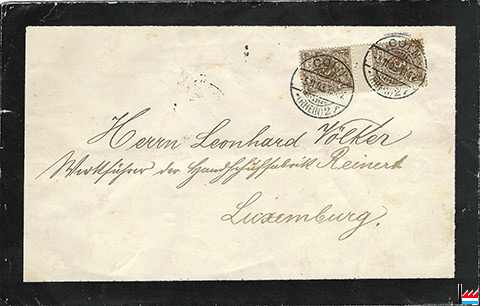 CÖLN
(RHEIN) 2
CÖLN
Herrn Leonhard Völker
Werkführer der Handschuhfabrik Reinert
Luxemburg.